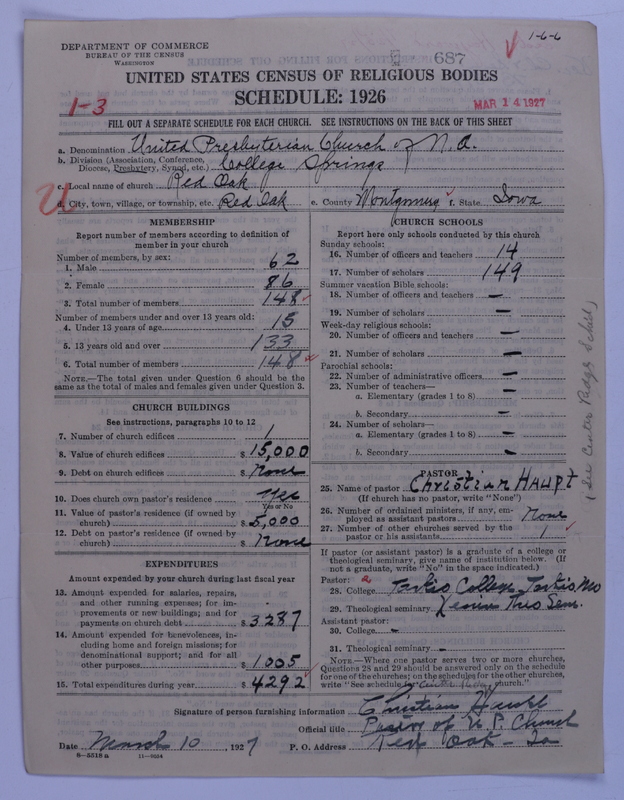 1-6-6
DEPARTMENT OF COMMERCE
BUREAU OF THE CENSUS
WASHINGTON
687
UNITED STATES CENSUS OF RELIGIOUS BODIES
SCHEDULE: 1926
1-3
MAR 14 1927
FILL OUT A SEPARATE SCHEDULE FOR EACH CHURCH. SEE INSTRUCTIONS ON THE BACK OF THIS SHEET
a. Denomination United Presbyterian Church of N.A.
b. Division (Association, Conference, Diocese, Presbytery, Synod, etc.) College Springs
c. Local name of church Red Oak
d. City, town, village, or township, etc. Red Oak e. County Montgomery f. State Iowa
MEMBERSHIP
Report number of members according to definition of member in your church
Number of members, by sex:
1. Male 62
2. Female 86
3. Total number of members 148
Number of members under and over 13 years old:
4. Under 13 years of age 15
5. 13 years old and over 133
6. Total number of members 148
NOTE.—The total given under Question 6 should be the same as the total of males and females given under Question 3.
CHURCH BUILDINGS
See instructions, paragraphs 10 to 12
7. Number of church edifices 1
8. Value of church edifices $ 15,000
9. Debt on church edifices $ None
10. Does church own pastor's residence Yes
Yes or No
11. Value of pastor's residence (if owned by church) $ 5,000
12. Debt on pastor's residence (if owned by church) $ None
EXPENDITURES
Amount expended by your church during last fiscal year
13. Amount expended for salaries, repairs, and other running expenses; for improvements or new buildings; and for payments on church debt $ 3287
14. Amount expended for benevolences, including home and foreign missions; for denominational support; and for all other purposes $ 1005
15. Total expenditures during year $ 4292
CHURCH SCHOOLS
Report here only schools conducted by this church
Sunday schools:
16. Number of officers and teachers 14
17. Number of scholars 149
Summer vacation Bible schools:
18. Number of officers and teachers —
19. Number of scholars —
Week-day religious schools:
20. Number of officers and teachers —
21. Number of scholars —
Parochial schools:
22. Number of administrative officers —
23. Number of teachers—
a. Elementary (grades 1 to 8) —
b. Secondary —
24. Number of scholars—
a. Elementary (grades 1 to 8) —
b. Secondary —
PASTOR
25. Name of pastor Christian Haupt
(If church has no pastor, write "None")
26. Number of ordained ministers, if any, employed as assistant pastors None
27. Number of other churches served by the pastor or his assistants 1
If pastor (or assistant pastor) is a graduate of a college or theological seminary, give name of institution below. (If not a graduate, write "No" in the space indicated.)
Pastor:
28. College Tarkio College Tarkio Mo
29. Theological seminary Xenia Theo Sem.
Assistant pastor:
30. College —
31. Theological seminary —
NOTE.—Where one pastor serves two or more churches, Questions 28 and 29 should be answered only on the schedule for one of the churches; on the schedules for the other churches, write "See schedule for Center Ridge church."
(See Center Ridge Sched.)
Signature of person furnishing information Christian Haupt
Official title Pastor of U.P. Church
Date March 10, 1927 P. O. Address Red Oak - Ia
8—5518a 11—9834